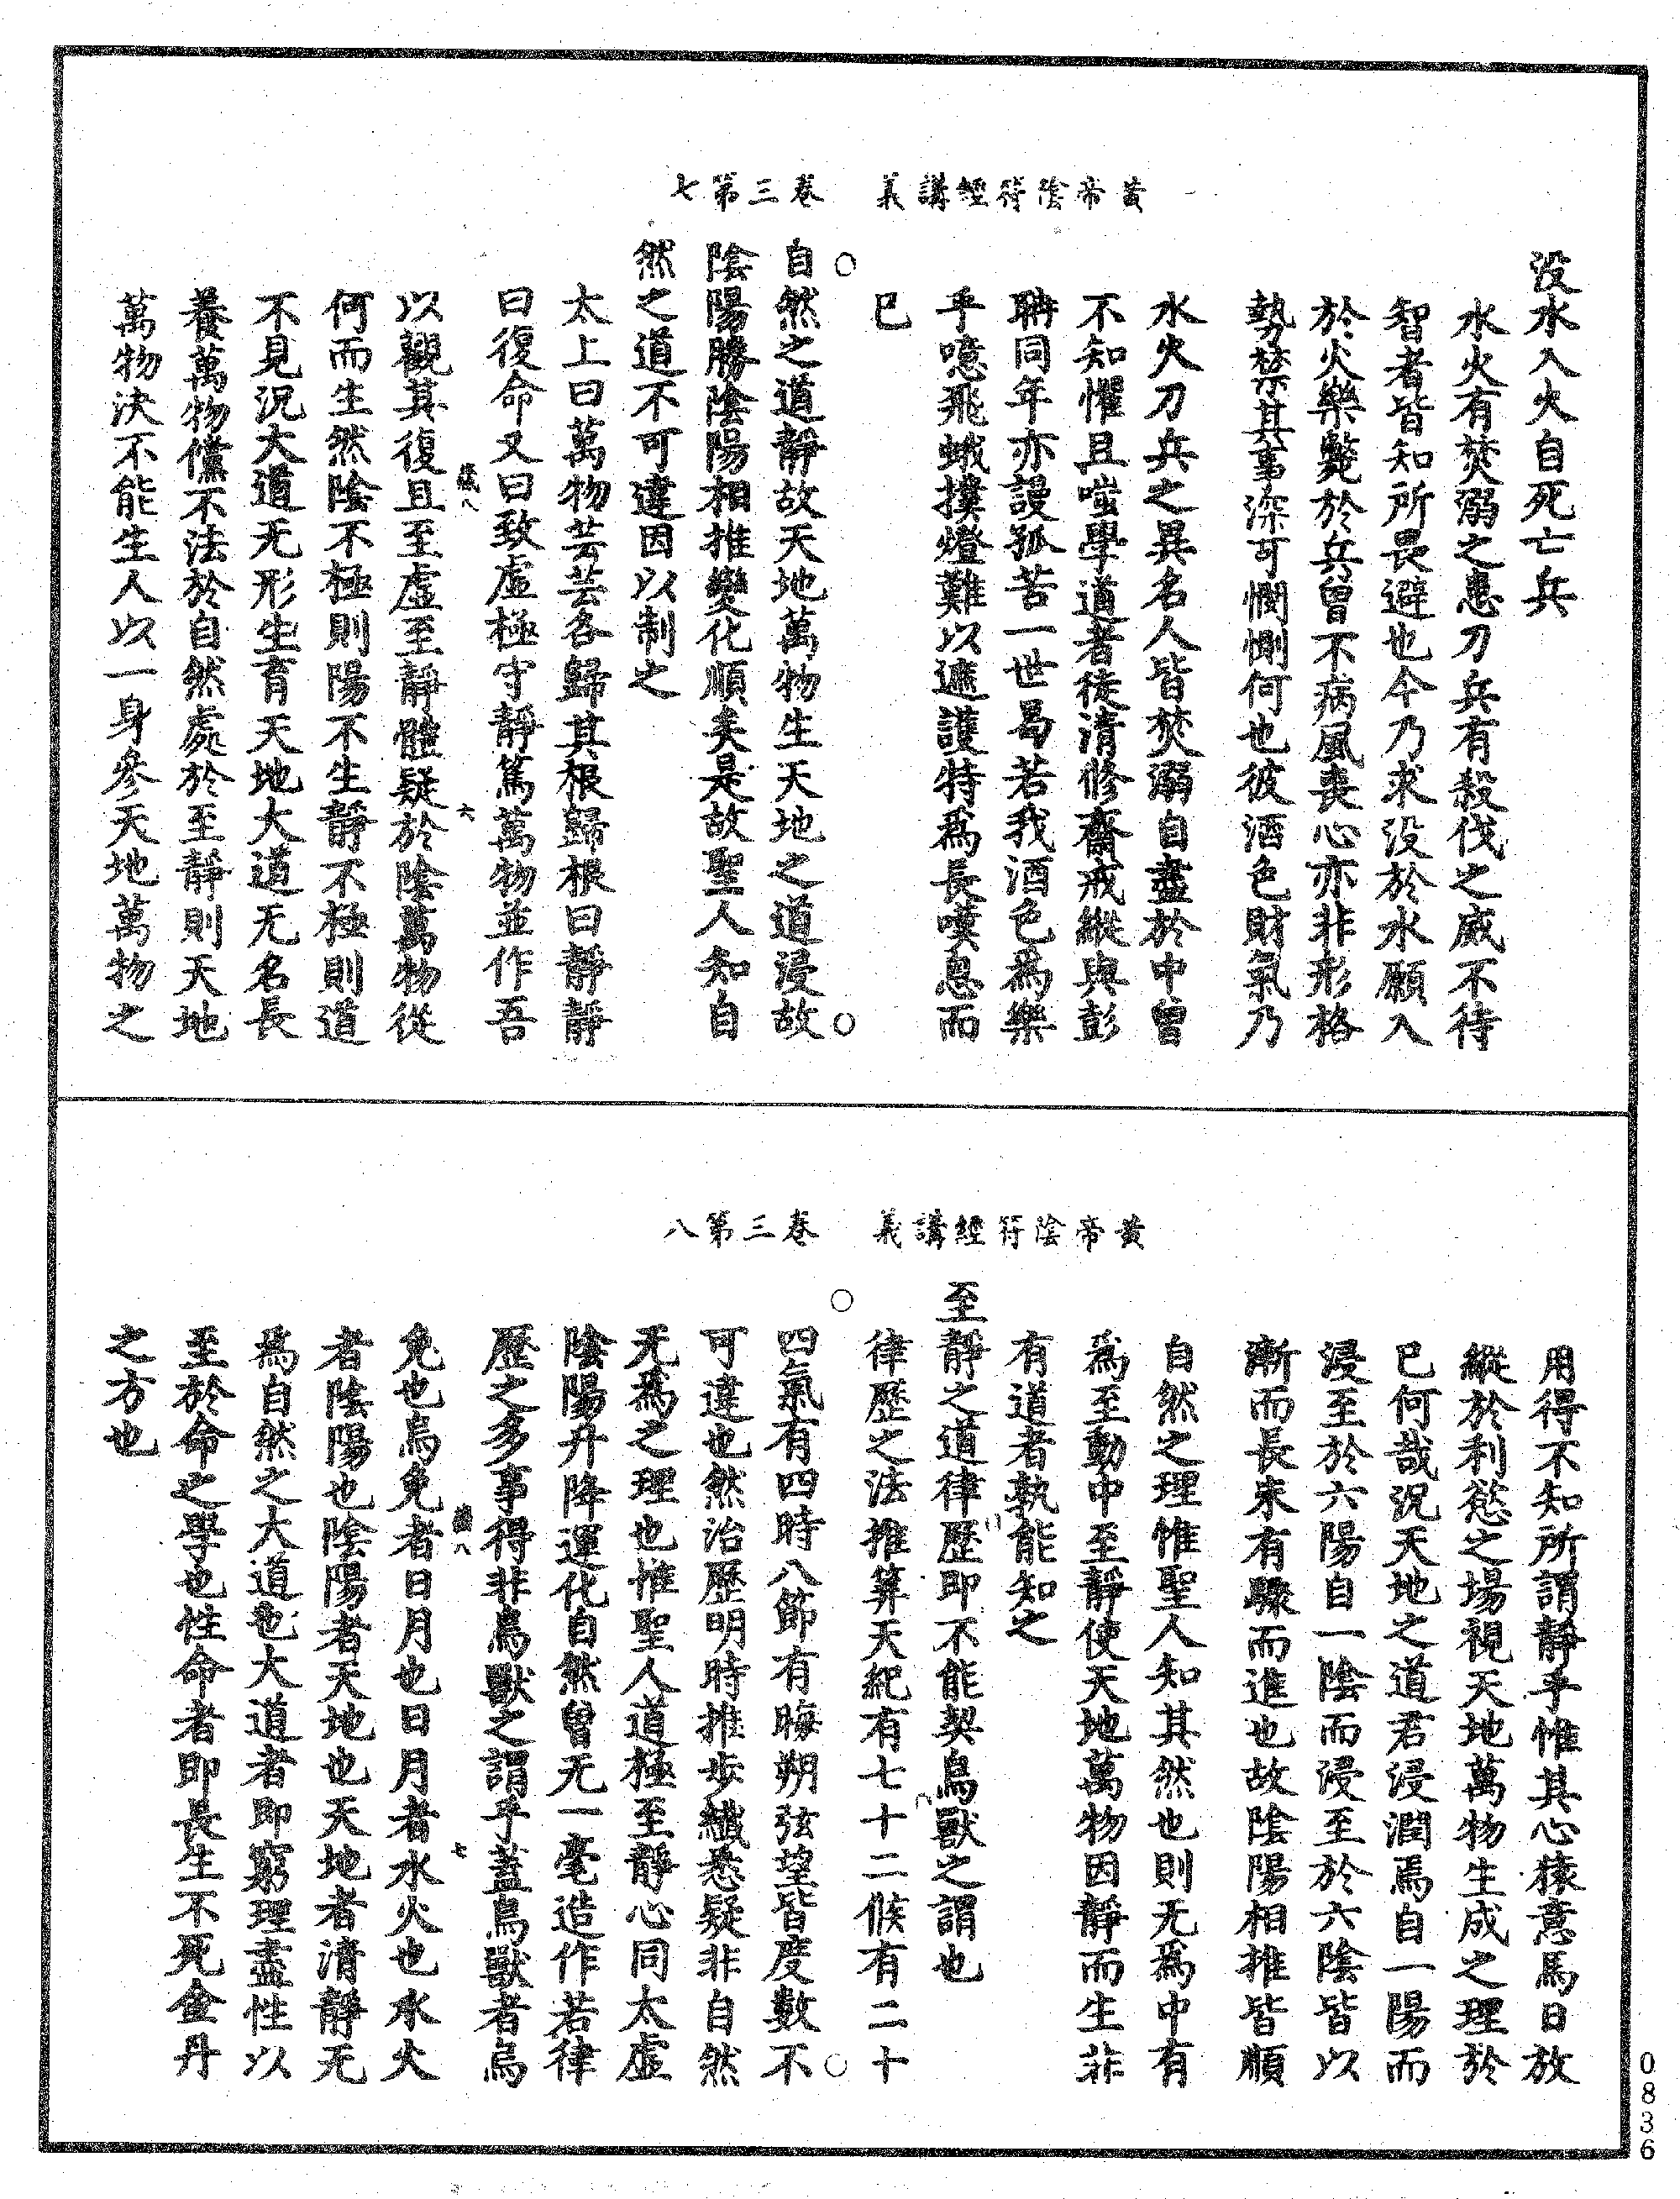 黃帝陰符經講義　卷三第七
没水入火自死亡兵
水火有焚溺之患刀兵有殺伐之威不待
智者皆知所畏避也今乃求没於水願入
於火樂斃於兵曾不病風喪心亦非形格
勢禁其事深可憫惻何也彼酒色財氣乃
水火刀兵之異名人皆焚溺自盡於中曾
不知懼且嗤學道者徒清修齋戒縱與彭
聃同年亦謾孤苦一世曷若我酒色為樂
乎噫飛蛾撲燈難以遮護特為長嘆息而
已
自然之道靜故天地萬物生天地之道浸故
陰陽勝陰陽相推變化順矣是故聖人知自
然之道不可違因以制之
太上曰萬物芸芸各歸其根歸根曰靜靜
曰復命又曰致虛極守靜篤萬物並作吾
以觀其復且至虛至靜體疑於陰萬物從
何而生然陰不極則陽不生靜不極則道
不見況大道无形生育天地大道无名長
養萬物儻不法於自然處於至靜則天地
萬物決不能生人以一身參天地萬物之
六
黃帝陰符經講義　卷三第八
用得不知所謂靜乎惟其心猿意馬日放
縱於利慾之場視天地萬物生成之理於
已何哉況天地之道君浸潤焉自一陽而
浸至於六陽自一陰而浸至於六陰皆以
漸而長未有驟而進也故陰陽相推皆順
自然之理惟聖人知其然也則无為中有
為至動中至靜使天地萬物因靜而生非
有道者孰能知之
至靜之道律曆即不能契鳥獸之謂也
律曆之法推筭天紀有七十二候有二十
四氣有四時八節有晦朔弦望皆度數不
可違也然治曆明時推步纖悉疑非自然
无為之理也惟聖人道極至靜心同太虛
陰陽升降運化自然曾无一毫造作若律
曆之多事得非鳥獸之謂乎蓋鳥獸者烏
兔也烏兔者日月也日月者水火也水火
者陰陽也陰陽者天地也天地者清靜无
為自然之大道也大道者即窮理盡性以
至於命之學也性命者即長生不死金丹
之方也
七
0836